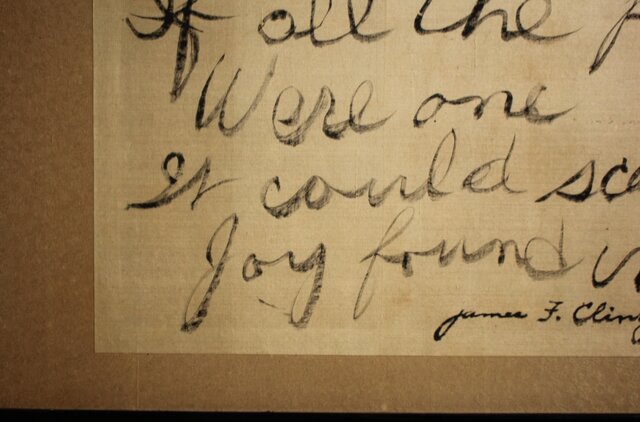 If all the
Were one
It could
Joy found
James F.